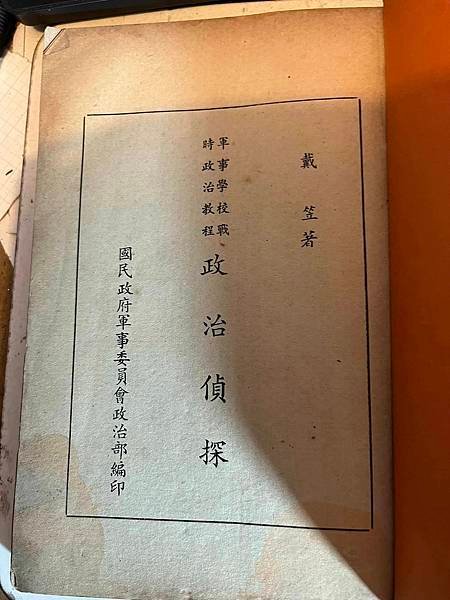 戴笠著
軍事學校戰
時政治教程
政治偵探
國民政府軍事委員會政治部編印